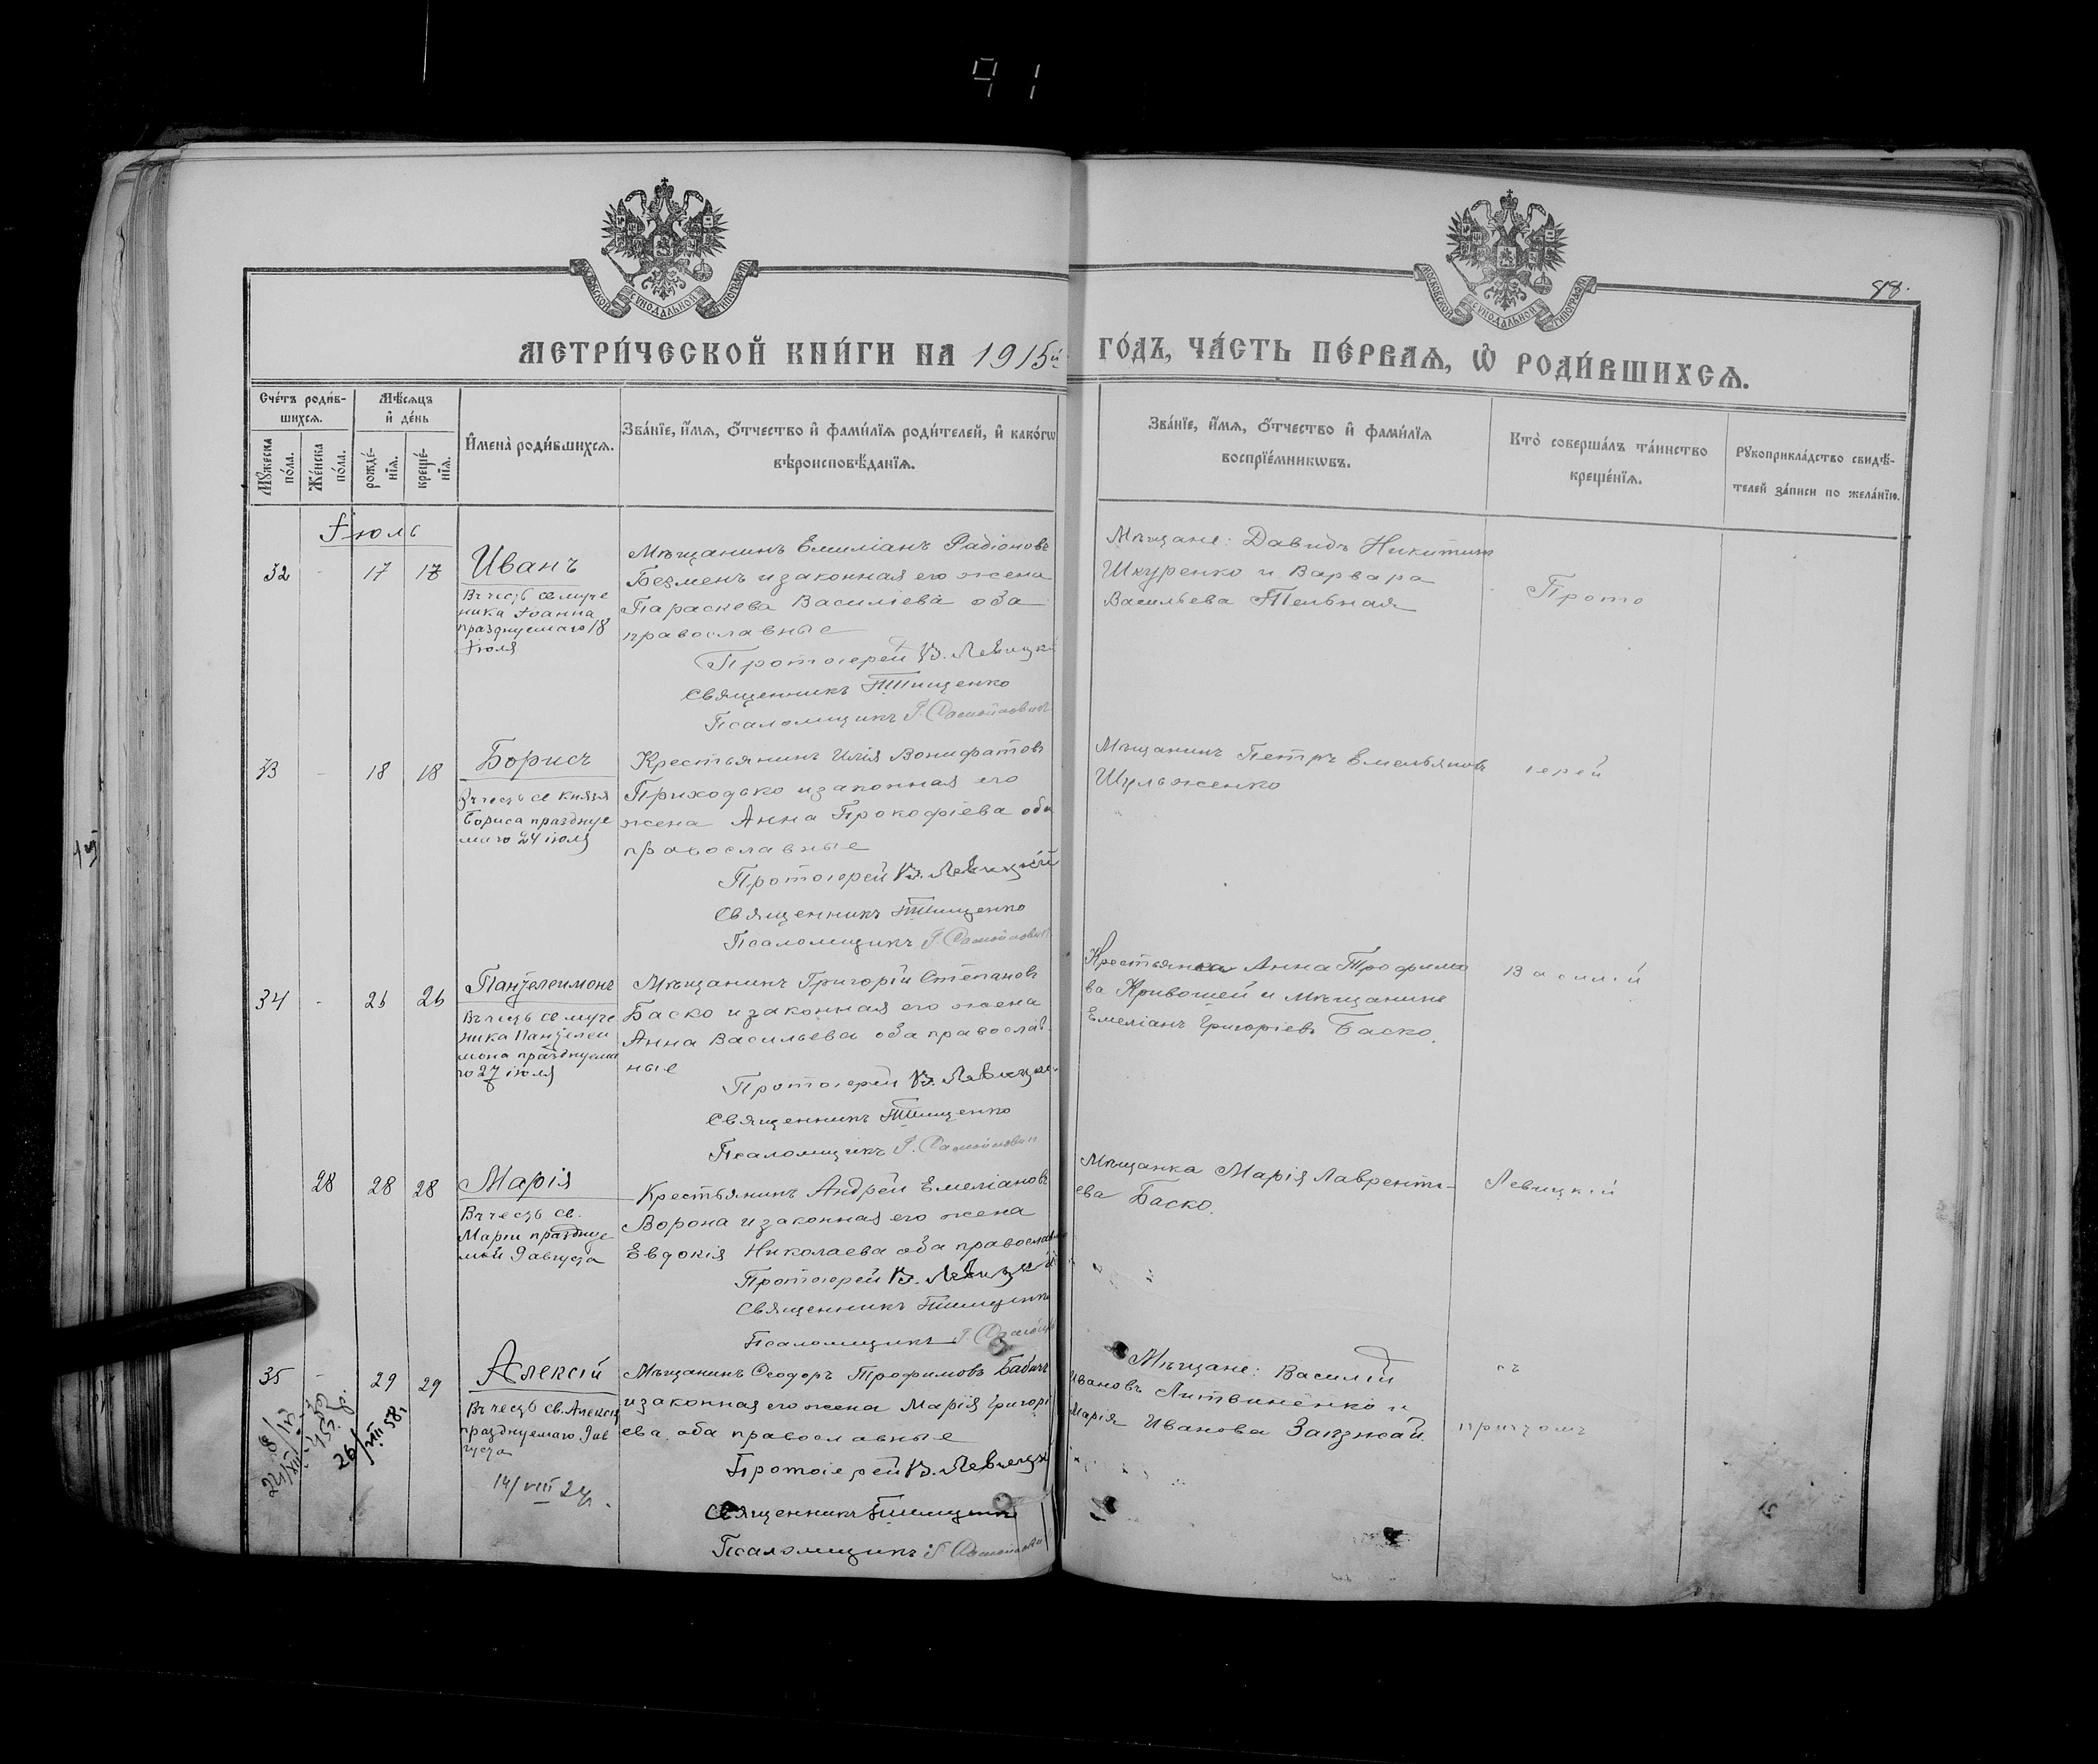 91
МОСКОВСКОЙ СѴНОДАЛЬНОЙ ТИПОГРАФІИ
МОСКОВСКОЙ СѴНОДАЛЬНОЙ ТИПОГРАФІИ
88.
МЕТРИ́ЧЕСКОЙ КНИ́ГИ НА 1915й ГО́ДЪ, ЧА́СТЬ ПЕ́РВАЯ, Ѡ҆ РОДИ́ВШИХСЯ.
Сче́тъ роди́в-
шихся.
Мѣ́сяцъ
и҆ де́нь
Мꙋ́жеска
по́ла.
Же́нска
по́ла.
рожде́-
нїя.
креще́-
нїя.
И҆мена̀ роди́вшихся.
Зва́нїе, и҆́мя, ѻ҆́тчество и҆ фами́лїя роди́телей, и҆ како́гѡ
вѣроисповѣ́данїя.
Зва́нїе, и҆́мя, ѻ҆́тчество и҆ фами́лїя
воспрїе́мникѡвъ.
Кто̀ соверша́лъ та́инство
креще́нїя.
Рꙋкоприкла́дство свидѣ́-
телей за́писи по жела́нїю.
Іюль
32 - 17 18 Иванъ
Въ честь св муче
ника Іоанна
празднуемаго 18
іюля
Мѣщанинъ Емиліанъ Радіоновъ
Безменъ и законная его жена
Параскева Василіева оба
православные
Протоіерей В. Левицкій
Священникъ Тищенко
Псаломщикъ Г. Самойловичъ
Мѣщане: Давидъ Никитинъ
Шкуренко и Варвара
Васильева Тельная
Прото
33 - 18 18 Борисъ
Въ честь св князя
Бориса празднуе
маго 24 іюля
Крестьянинъ Илія Вонифатовъ
Приходько и законная его
жена Анна Прокофіева оба
православные
Протоіерей В. Левицкій
Священникъ Тищенко
Псаломщикъ Г. Самойловичъ
Мѣщанинъ Петръ Емельяновъ
Шульженко
іерей
34 - 26 26 Пантелеимонъ
Въ честь св муче
ника Пантелеи
мона празднуема
го 27 іюля
Мѣщанинъ Григорій Степановъ
Баско и законная его жена
Анна Васильева оба православ-
ные
Протоіерей В. Левицкій
Священникъ Тищенко
Псаломщикъ Г. Самойлович
Крестьянка Анна Трофимо
ва Кривошей и мѣщанинъ
Емеліанъ Григоріевъ Баско.
Василій
28 28 28 Марія
Въ честь св.
Маріи празднуе
мой 9 августа
Крестьянинъ Андрей Емеліановъ
Ворона и законная его жена
Евдокія Николаева оба православные
Протоіерей В. Левицкій
Священникъ Тищенко
Псаломщикъ Г. Самойлов
Мѣщанка Марія Лавренті-
ева Баско.
Левицкій
35 - 29 29 Алексій
Въ честь св. Алексія
празднуемаго 9 ав
густа
14/VIII 24г.
26/VIII 58г
Мѣщанинъ Ѳеодоръ Трофимовъ Бабичъ
и законная его жена Марія Григорі
ева, оба православные
Протоіерей В. Левицкій
Священникъ Тищенко
Псаломщикъ Г. Самойлович
Мѣщане: Василій
Ивановъ Литвиненко и
Марія Иванова
съ
причтомъ